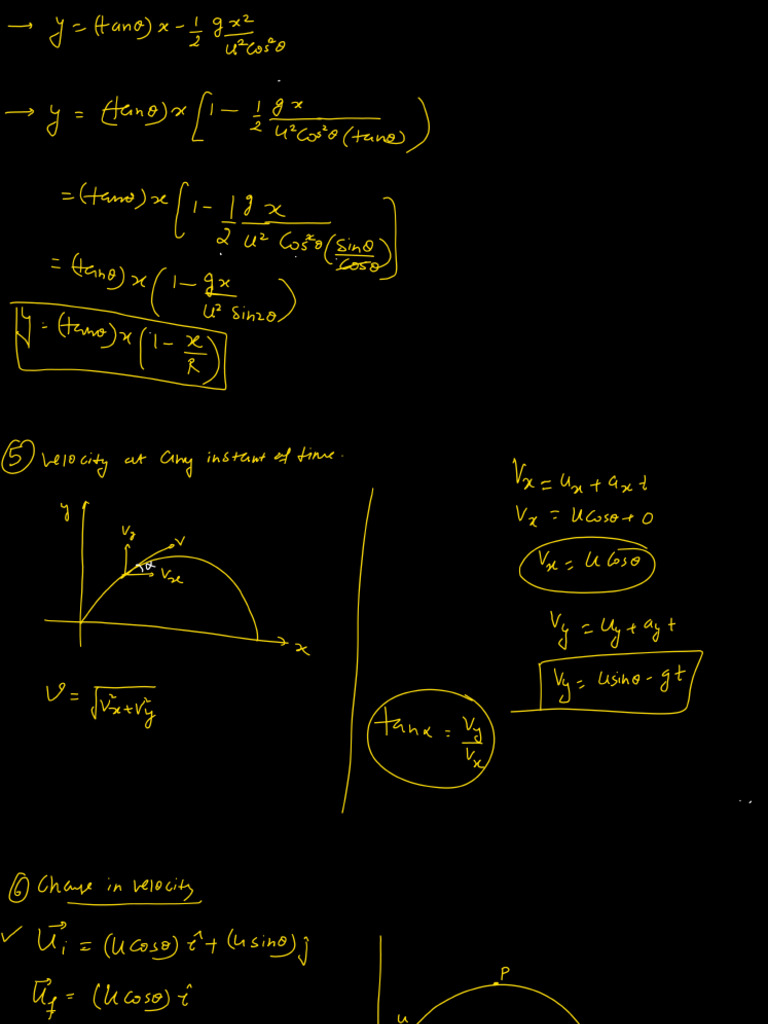 → y = (tanθ) x - 1/2 gx²/u²cos²θ
→ y = (tanθ) x [1 - 1/2 gx/u²cos²θ(tanθ)]
= (tanθ) x [1 - 1/2 g x/u² cos²θ (sinθ/cosθ)]
= (tanθ) x (1 - gx/u² sin2θ)
y = (tanθ) x (1 - x/R)
⑤ velocity at any instant of time.
y
Vy
V
α
Vx
x
v = √Vx² + Vy²
Vx = ux + ax t
Vx = ucosθ + 0
Vx = u cosθ
Vy = uy + ay t
Vy = usinθ - gt
tanα = Vy/Vx
⑥ Change in velocity
✓ u⃗i = (u cosθ) î + (u sinθ) ĵ
u⃗f = (u cosθ) î
P
u